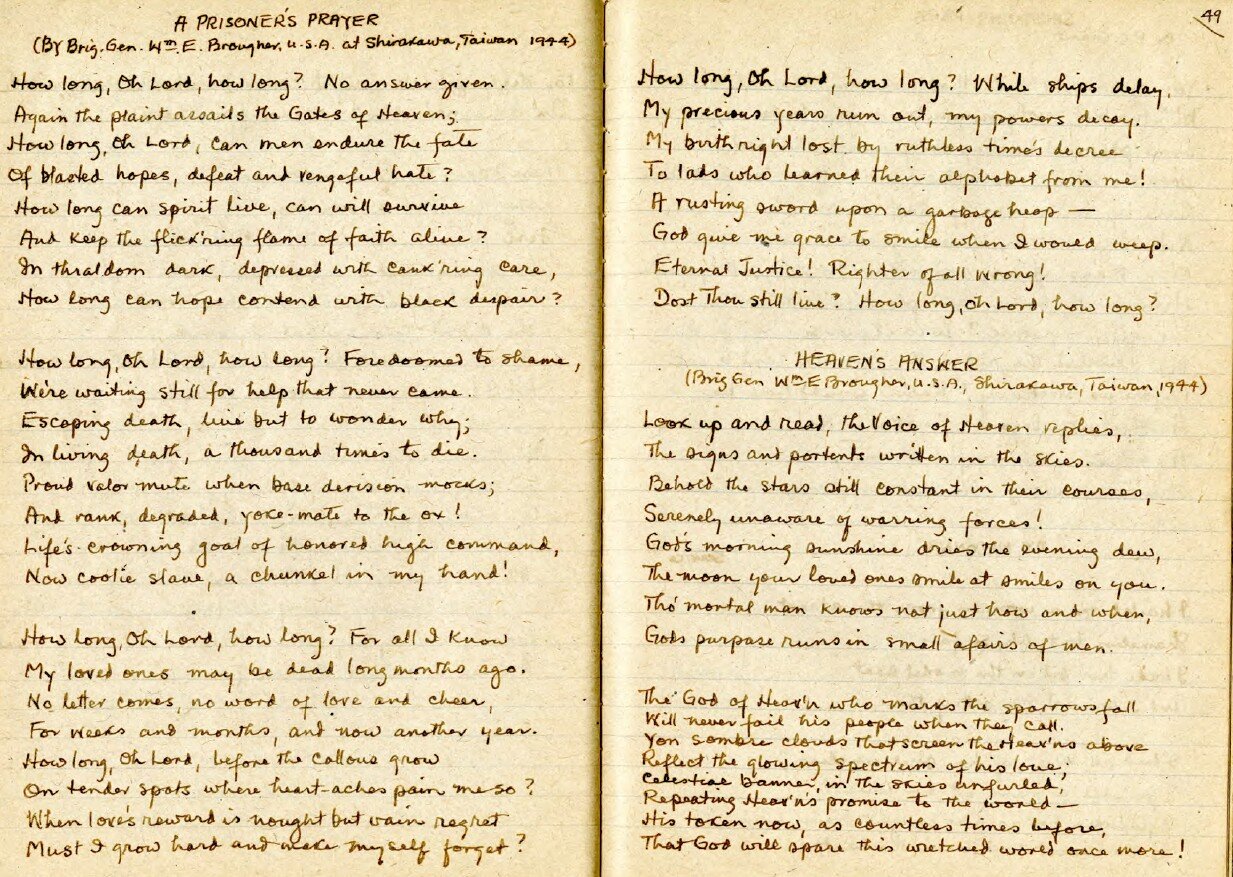 A PRISONER'S PRAYER
(By Brig. Gen. Wm. E. Brougher, U.S.A. at Shirakawa, Taiwan 1944)
How long, Oh Lord, how long? No answer given.
Again the plaint assails the Gates of Heaven;
How long, Oh Lord, can men endure the fate
Of blasted hopes, defeat and vengeful hate?
How long can spirit live, can will survive
And keep the flick'ring flame of faith alive?
In thraldom dark, depressed with cank'ring care,
How long can hope contend with black despair?
How long, Oh Lord, how long? Foredoomed to shame,
We're waiting still for help that never came.
Escaping death, live but to wonder why;
In living death, a thousand times to die.
Proud valor mute when base derision mocks;
And rank, degraded, yoke-mate to the ox!
Life's crowning goal of honored high command,
Now coolie slave, a chunkel in my hand!
How long, Oh Lord, how long? For all I know
My loved ones may be dead long months ago.
No letter comes, no word of love and cheer,
For weeks and months, and now another year.
How long, Oh Lord, before the callous grow
On tender spots where heart-aches pain me so?
When love's reward is nought but vain regret
Must I grow hard and make myself forget?
49
How long, Oh Lord, how long? While ships delay,
My precious years run out, my powers decay.
My birthright lost by ruthless time's decree
To lads who learned their alphabet from me!
A rusting sword upon a garbage heap —
God give me grace to smile when I would weep.
Eternal Justice! Righter of all wrong!
Dost Thou still live? How long, Oh Lord, how long?
HEAVEN'S ANSWER
(Brig Gen Wm E Brougher, U.S.A., Shirakawa, Taiwan, 1944)
Look up and read, the Voice of Heaven replies,
The signs and portents written in the skies.
Behold the stars still constant in their courses,
Serenely unaware of warring forces!
God's morning sunshine dries the evening dew,
The moon your loved ones smile at smiles on you.
Tho' mortal man knows not just how and when,
Gods purpose runs in small afairs of men.
The God of Heav'n who marks the sparrows fall
Will never fail his people when they call.
Yon sombre clouds that screen the Heav'ns above
Reflect the glowing spectrum of his love;
Celestial banner, in the skies unfurled,
Repeating Heav'n's promise to the world —
His token now, as countless times before,
That God will spare this wretched world once more!